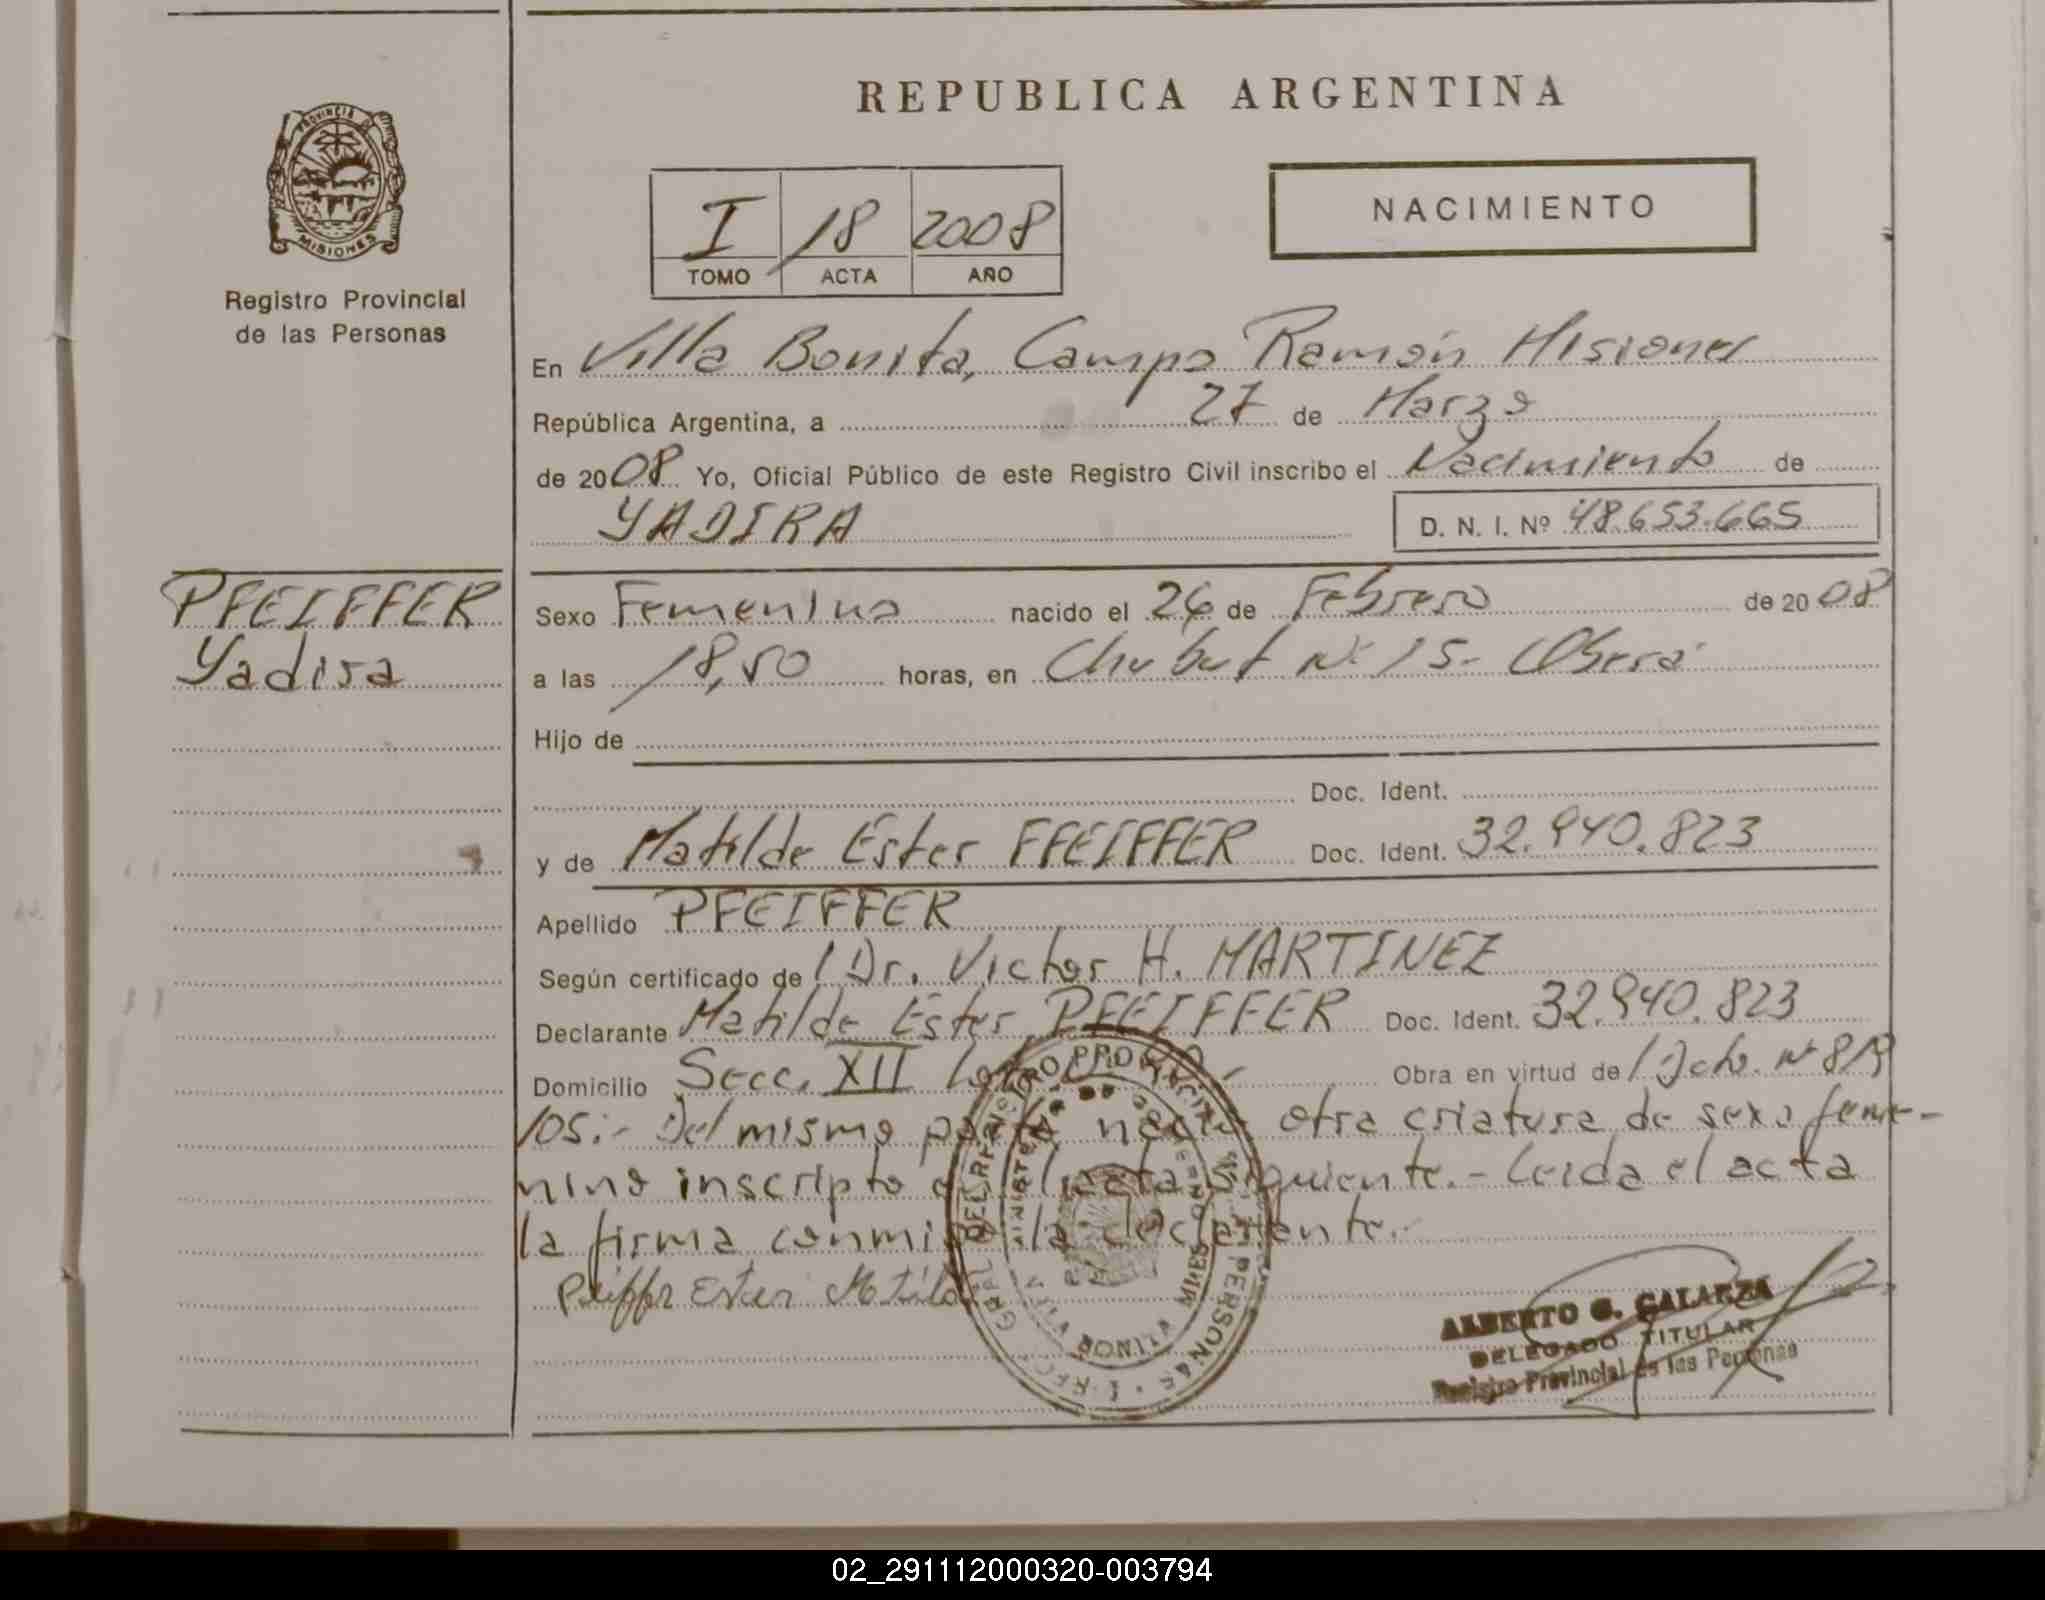 REPUBLICA ARGENTINA
PROVINCIA DE
MISIONES
Registro Provincial
de las Personas
I 18 2008
TOMO ACTA AÑO
NACIMIENTO
En Villa Bonita, Campo Ramón Misiones
República Argentina, a 27 de Marzo
de 2008 Yo, Oficial Público de este Registro Civil inscribo el Nacimiento de
YADIRA D. N. I. Nº 48.653.665
PFEIFFER
Yadira
Sexo Femenino nacido el 26 de Febrero de 2008
a las 18,50 horas, en Chubut Nº 15- Oberá
Hijo de
Doc. Ident.
y de Matilde Ester PFEIFFER Doc. Ident. 32.940.823
Apellido PFEIFFER
Según certificado de Dr. Victor H. MARTINEZ
Declarante Matilde Ester PFEIFFER Doc. Ident. 32.940.823
Domicilio Secc. XII Obra en virtud de Dcto. Nº 819
105:- Del mismo parto nació otra criatura de sexo feme-
nino inscripto acta siguiente.- Leida el acta
la firma conmigo la declarante.-
Ester
ALBERTO G. GALARZA
DELEGADO TITULAR
Registro Provincial de las Personas
02_291112000320-003794